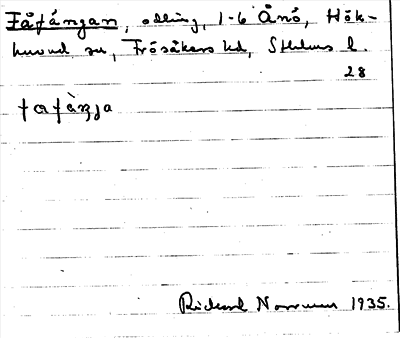 Fåfängan, odling, 1-6 Ånö, Hök-
huvud sn, Frösåkers hd, Sthlms l.
28
fafàŋja
Rickard Norrman 1935.